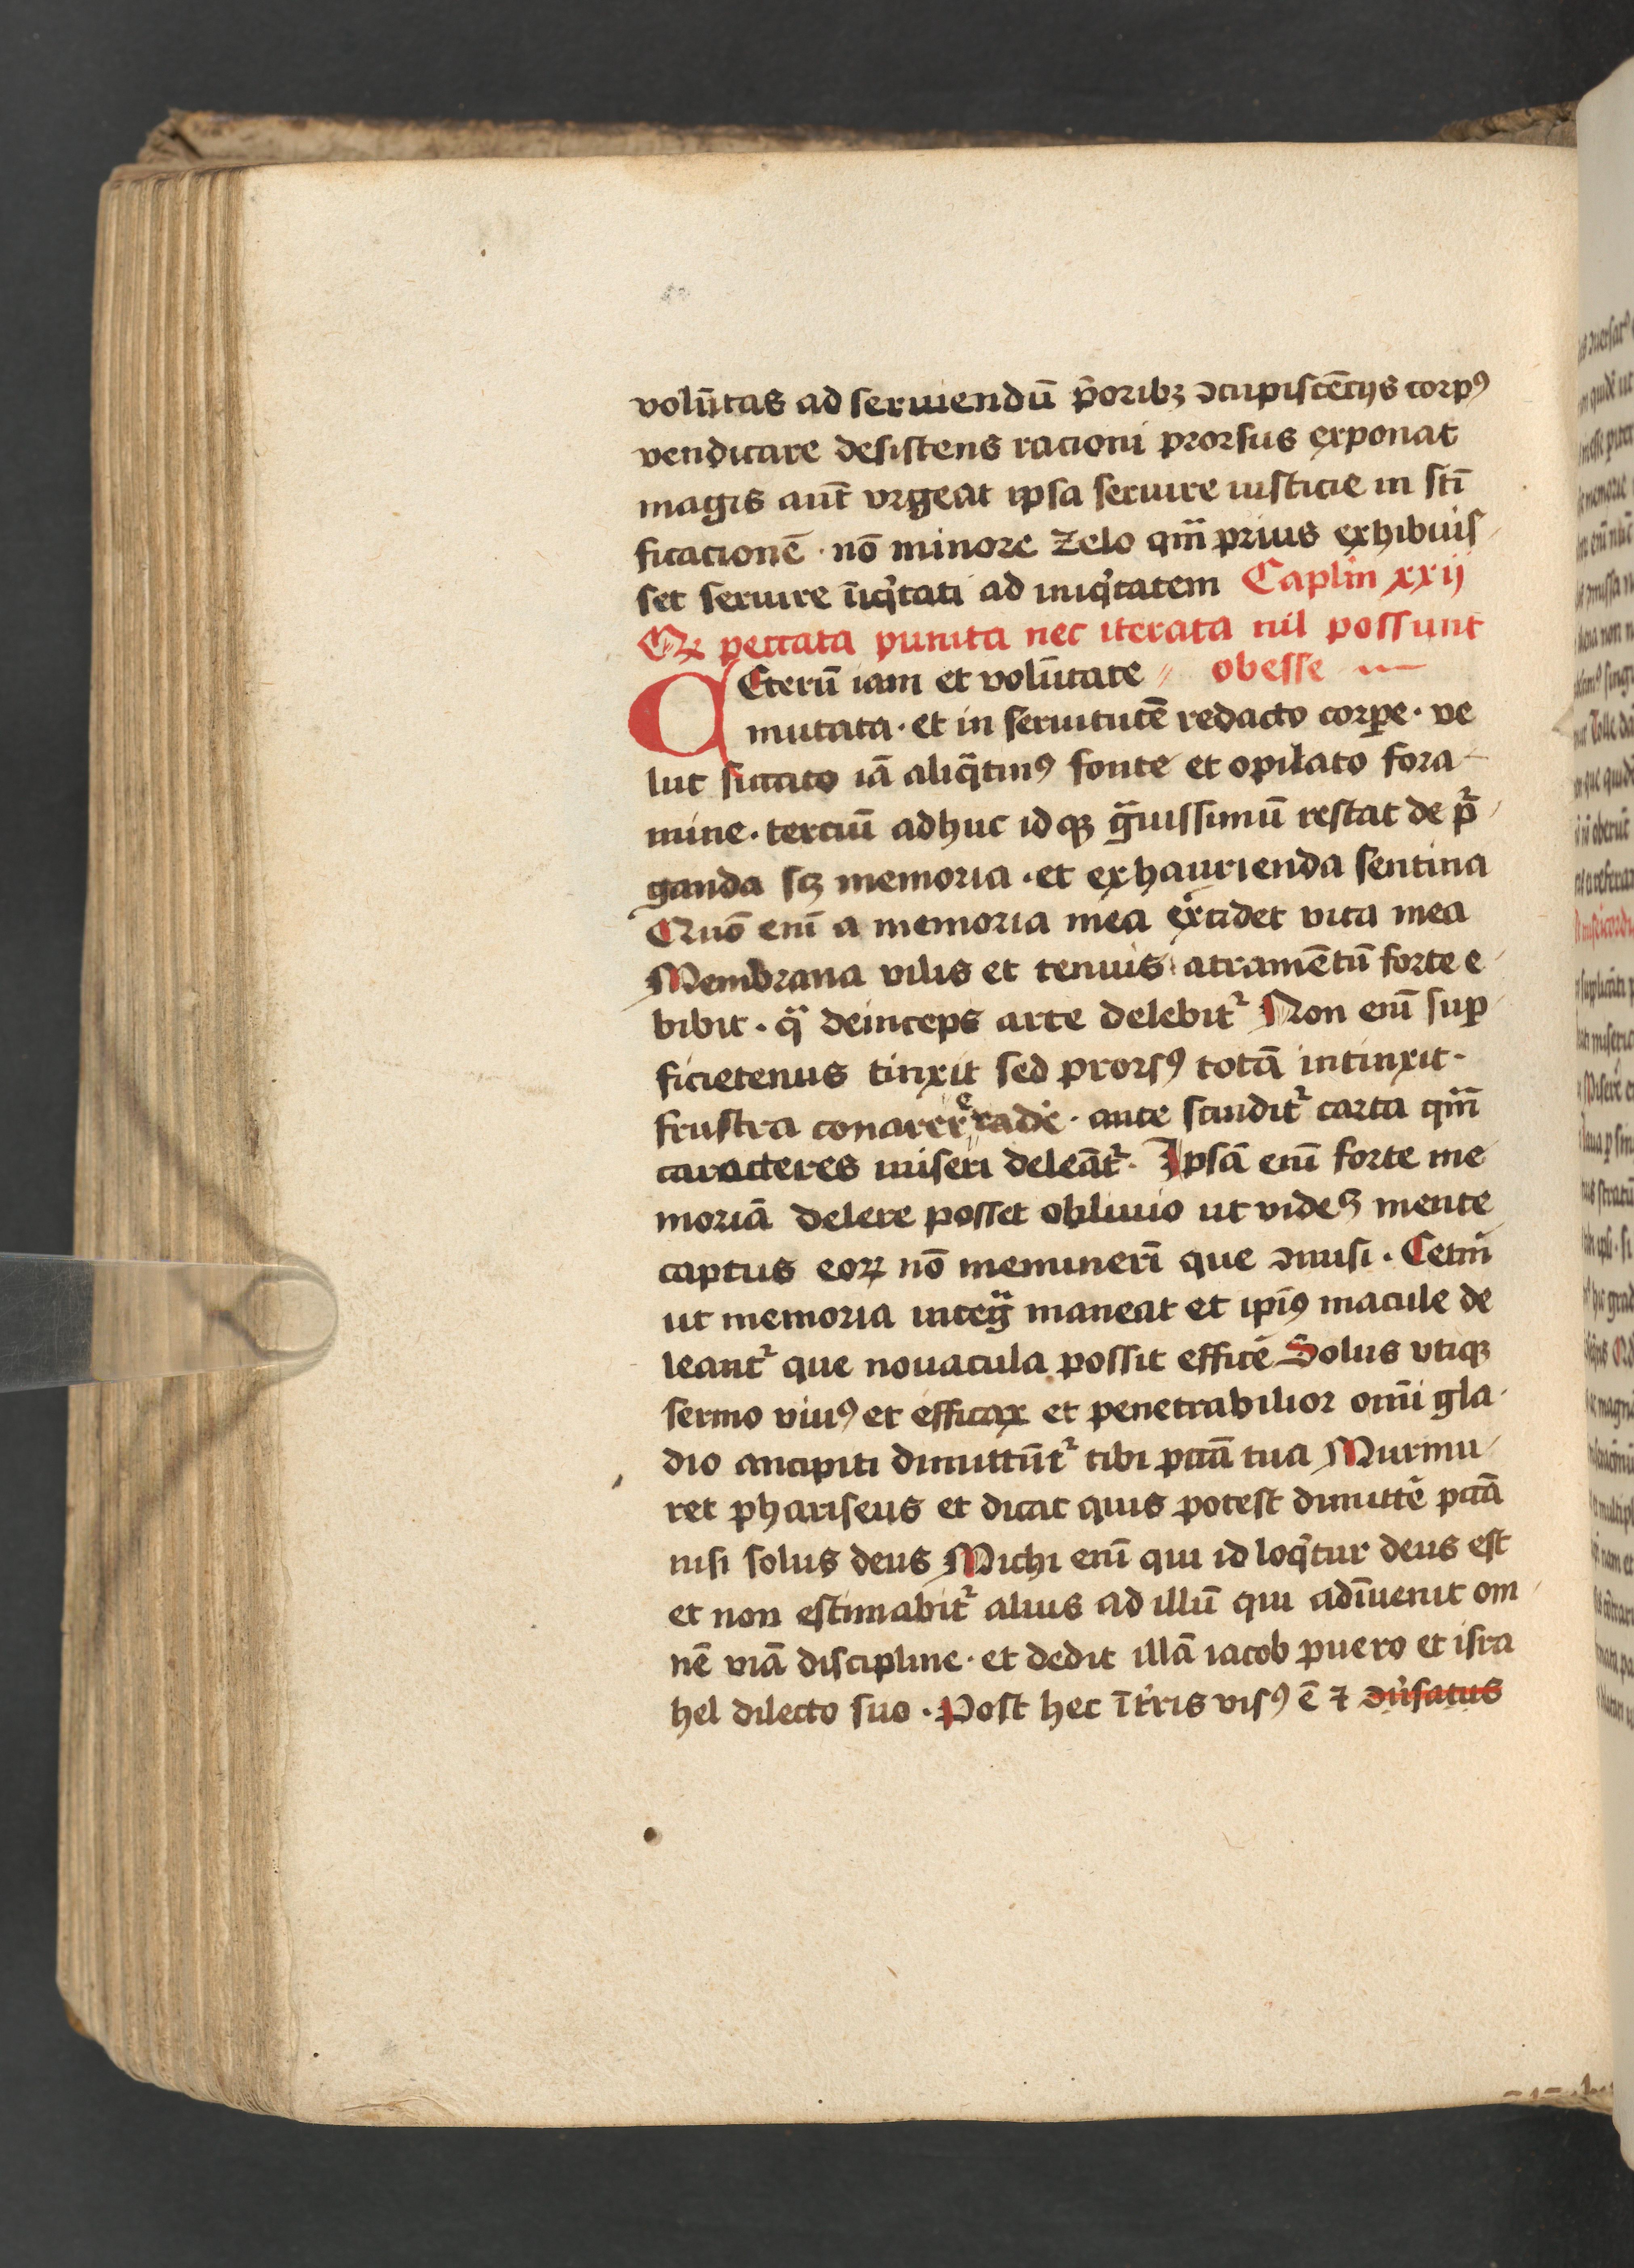 volūtas ad seruiendū p̄oribꝫ ɔcupiscēcijs corpꝰ
vendicare desistens racioni prorsus exponat
magis aut̄ vrgeat ipsa seruire iusticie in sc̄i
ficacionē · nō minore zelo qm̄ prius exhibuis
set seruire īiqͥtati ad iniqͥtatem Caplm̄ xxij
Qꝫ peccata punita nec iterata nil possunt
Ceterū iam et volūtate // obesse
mutata · et in seruitutē redacto corpore · ve
lut siccato iā aliqᷓtinꝰ fonte et opilato fora
mine · terciū adhuc idqꝫ gᷓuissimū restat de pͬ
ganda scꝫ memoria · et exhaurienda sentina
Quō enī a memoria mea excidet vita mea
Membrana vilis et tenuis atramētū forte e
bibit · qᷓ deinceps arte delebitͬ Non enī suꝑ
ficietenus tinxit sed prorsꝰ totā intinxit ·
frustra conarer eradē · ante scinditͬ carta qm̄
caracteres miseri deleāt̾ · Ipsā enī forte me
moriā delere posset obliuio ut videꝫ mente
captus eoꝝ nō meminerī que ɔmisi · Cetm̄
ut memoria integᷓ maneat et ipīꝰ macule de
leantͬ que nouacula possit efficē Solus vtiqꝫ
sermo viuꝰ et efficax et penetrabilior om̄i gla
dio ancipiti dimittūtͬ tibi pctā tua Murmu
ret phariseus et dicat quis potest dimittē pctā
nisi solus deus Michi enī qui id loqͥtur deus est
et non estimabitͬ alius ad illū qui adīuenit om
nē viā discipline · et dedit illā iacob puero et isra
hel dilecto suo · Post hec ī tͬris visꝰ ē ⁊ dūsatus